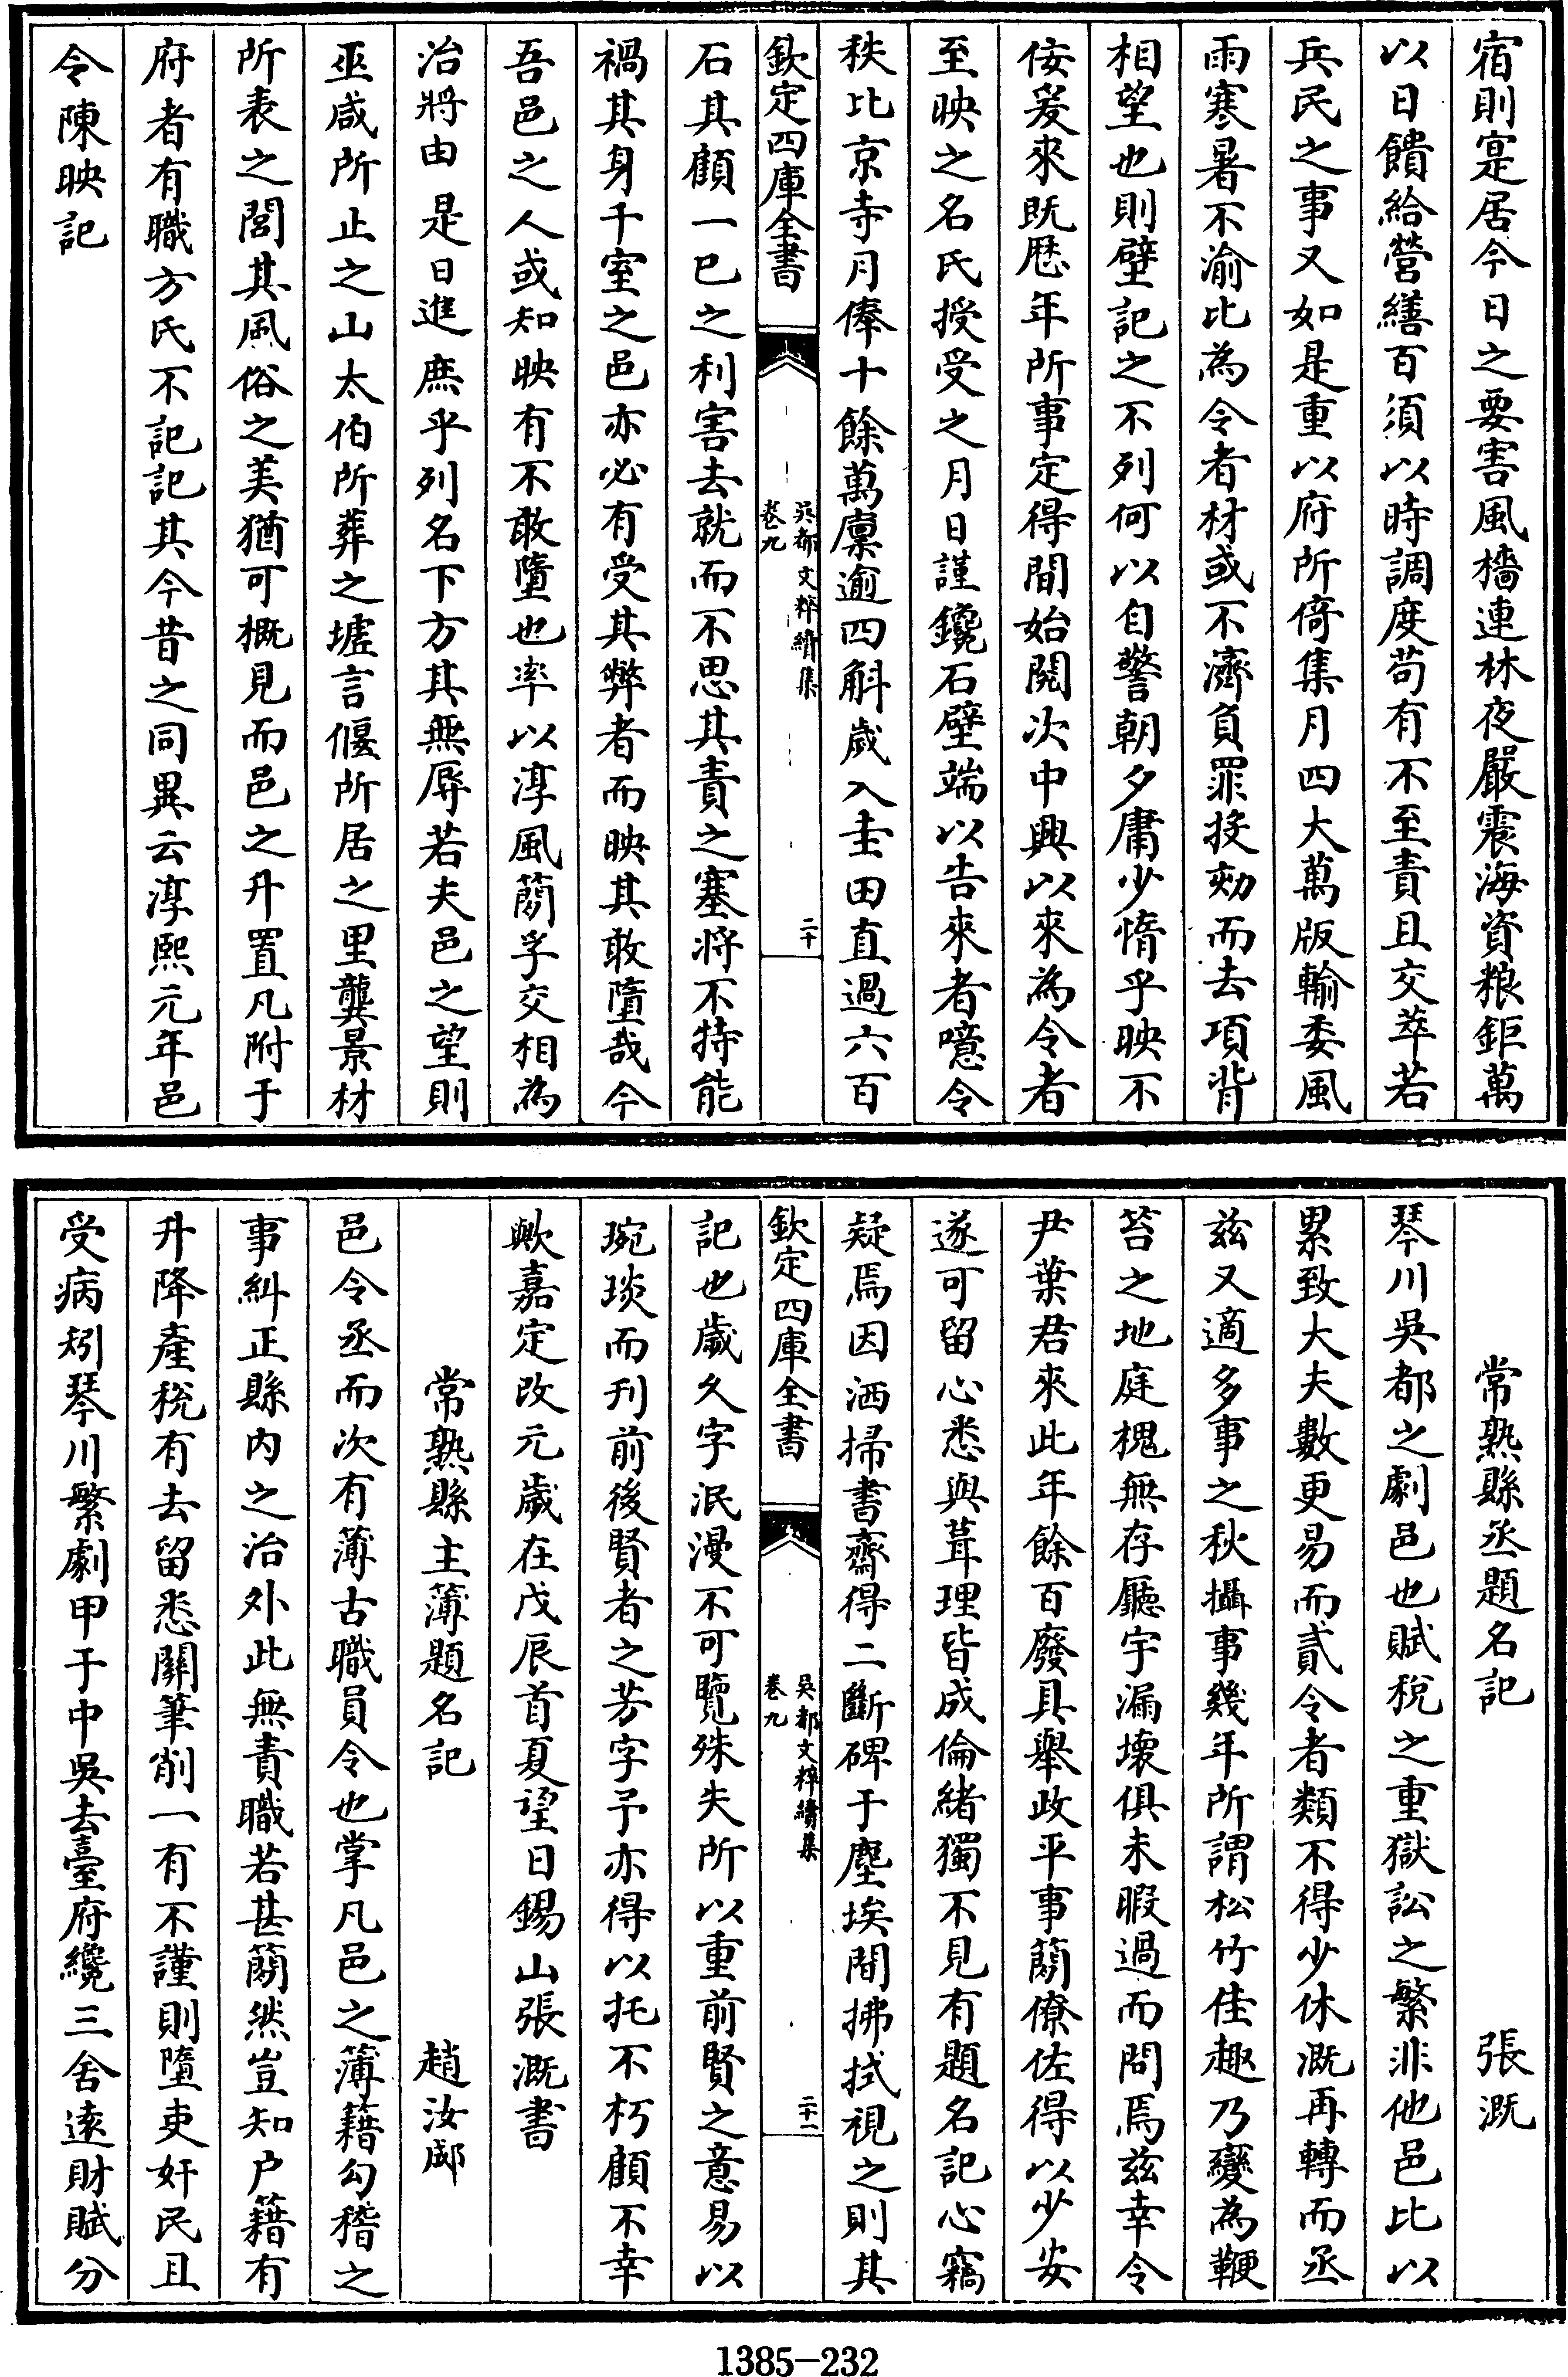 宿則寔居今日之要害風檣連林夜嚴震海資粮鉅萬
以日饋給營繕百須以時調度苟有不至責且交萃若
兵民之事又如是重以府所倚集月四大萬版輸委風
雨寒暑不渝比為令者材或不濟負罪投劾而去項背
相望也則壁記之不列何以自警朝夕庸少惰乎映不
佞爰來既歴年所事定得間始閱次中興以來為令者
至映之名氏授受之月日謹鑱石壁端以告來者噫令
秩比京寺月俸十餘萬廩逾四斛歲入圭田直過六百
欽定四庫全書
吳都文粹續集
卷九
二十
石其顧一已之利害去就而不思其責之塞將不特能
禍其身千室之邑亦必有受其弊者而映其敢墮哉今
吾邑之人或知映有不敢墮也率以淳風簡孚交相為
治將由是日進庶乎列名下方其無辱若夫邑之望則
巫咸所止之山太伯所葬之墟言偃所居之里龔景材
所表之閭其風俗之美猶可概見而邑之升置凡附于
府者有職方氏不記記其今昔之同異云淳熙元年邑
令陳映記
常熟縣丞題名記 張溉
琴川吳都之劇邑也賦稅之重獄訟之繁非他邑比以
累致大夫數更易而貳令者類不得少休溉再轉而丞
兹又適多事之秋攝事幾年所謂松竹佳趣乃變為鞭
笞之地庭槐無存廳宇漏壞俱未暇過而問焉兹幸令
尹葉君來此年餘百廢具舉政平事簡僚佐得以少安
遂可留心悉與葺理皆成倫緒獨不見有題名記心竊
疑焉因洒掃書齋得二斷碑于塵埃間拂拭視之則其
欽定四庫全書
吳都文粹續集
卷九
二十一
記也歲久字泯漫不可覽殊失所以重前賢之意易以
琬琰而刊前後賢者之芳字予亦得以托不朽顧不幸
歟嘉定改元歲在戊辰首夏望日錫山張溉書
常熟縣主簿題名記 趙汝郕
邑令丞而次有簿古職員令也掌凡邑之簿籍勾稽之
事糾正縣內之治外此無責職若甚簡然豈知户籍有
升降產稅有去留悉關筆削一有不謹則墮吏奸民且
受病矧琴川繁劇甲于中吳去臺府纔三舍遠財賦分
1385-232